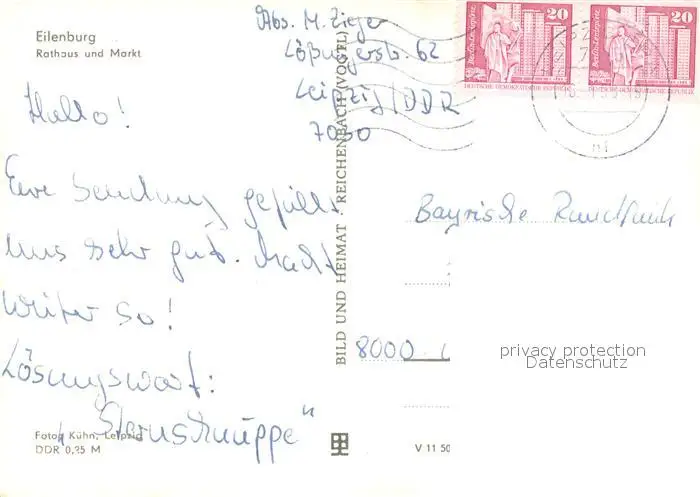 Eilenburg
Rathaus und Markt
Abs. M. Zieger
Lößnigerstr. 62
Leipzig/DDR
7030
20
20
Berlin-Leninplatz
Berlin-Leninplatz
DEUTSCHE DEMOKRATISCHE REPUBLIK
DEUTSCHE DEMOKRATISCHE REPUBLIK
Hallo!
Eure Sendung gefällt
uns sehr gut. Macht
weiter so!
Lösungswort:
"Sternschnuppe"
Bayrische Rundfunk
8000
BILD UND HEIMAT · REICHENBACH (VOGTL)
privacy protection
Datenschutz
Foto: Kühn, Leipzig
DDR 0,25 M
V 11 50